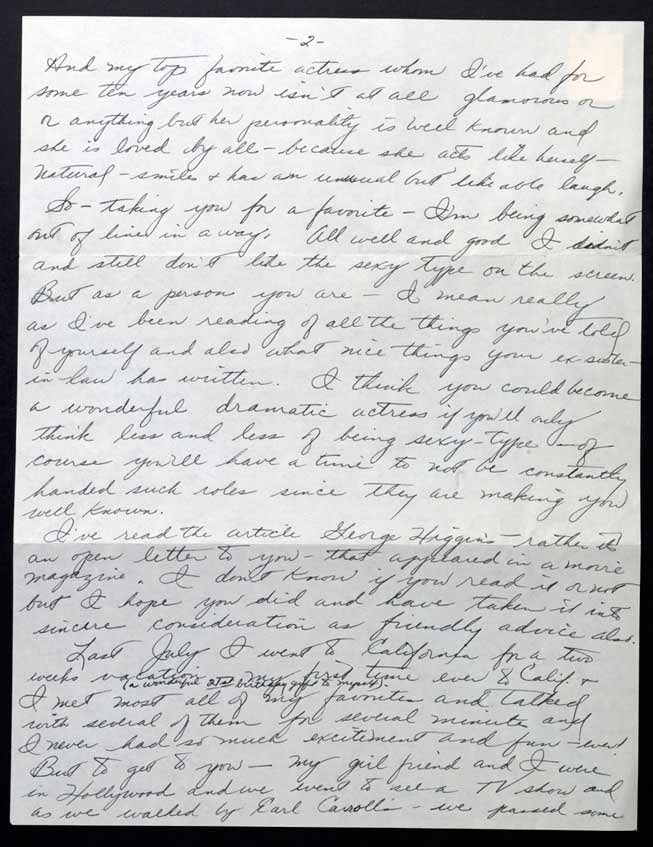 -2-
And my top favorite actress whom I've had for
some ten years now isn't at all glamorous or
or anything but her personality is well known and
she is loved by all - because she acts like herself -
natural - smiles & has an unusual but likeable laugh.
So - taking you for a favorite - I'm being somewhat
out of line in a way. All well and good I didn't
and still don't like the sexy type on the screen.
But as a person you are - I mean really
as I've been reading of all the things you've told
of yourself and also what nice things your ex-sister-
in-law has written. I think you could become
a wonderful dramatic actress if you'll only
think less and less of being sexy-type - of
course you'll have a time to not be constantly
handed such roles since they are making you
well known.
I've read the article George Higgins - rather it's
an open letter to you - that appeared in a movie
magazine. I don't know if you read it or not
but I hope you did and have taken it into
sincere consideration as friendly advice also.
Last July I went to California for a two
weeks vacation - my first time ever to Calif. &
(a wonderful 21st birthday gift to myself)
I met most all of my favorites and talked
with several of them for several minutes and
I never had so much excitement and fun - ever!
But to get to you - my girl friend and I were
in Hollywood and we went to see a TV show and
as we walked by Earl Carroll's - we passed some